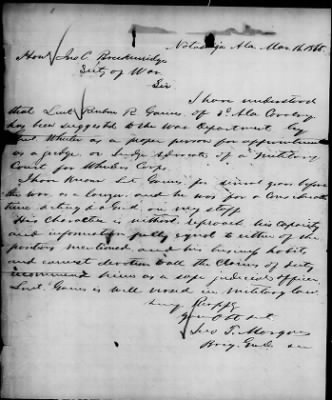 Notasulga Ala. Mar. 16. 1865.
Hon Jno C. Breckinridge
Secty of War
Sir
I have understood
that Lieut R. Gaines of 3d Ala Cavalry
has been suggested to the War Department by
Genl Wheeler as a proper person for appointment
as a judge or Judge Advocate of a Military
Court for Wheelers Corps.
I have known Lt. Gaines for several years before
the war as a lawyer & he was for a considerable
time acting A.A.G. on my staff
His character is without reproach his capacity
and information fully equal to either of the
positions mentioned and his business habits
and earnest devotion to all the claims of duty
recommend him as a safe judicial officer.
Lieut. Gaines is well versed in Military law.
Very Respfy
Your Obt Svt
Jno T. Morgan
Brig. Genl.